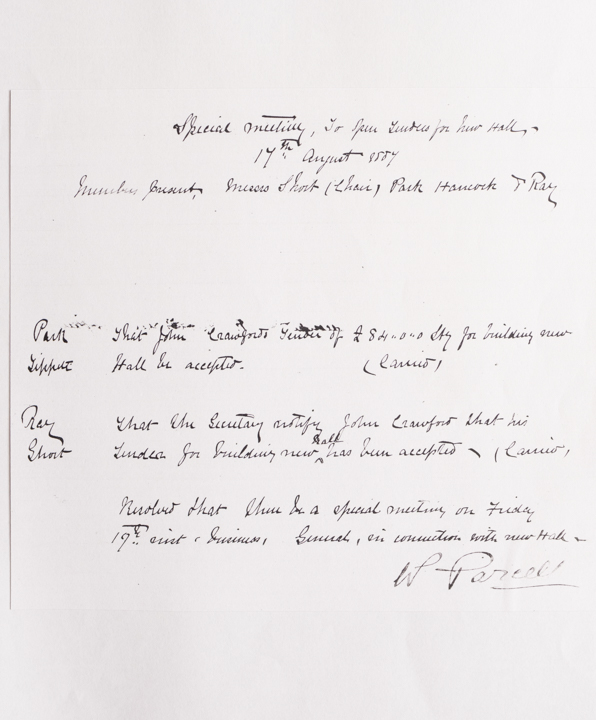 Special meeting, To Open Tenders for New Hall,
17th August
Members present, Messrs Short (Chair) Park Hancock T Ray
Park That John Crawfords Tender of £84-0-0 Stg for building new
Tippett Hall be accepted. (Carried)
Ray That the Secretary notify John Crawford that his
Short Tender for building new Hall has been accepted (Carried)
Resolved that there be a special meeting on Friday
19th inst. Business, General, in connection with new Hall
W Parcell